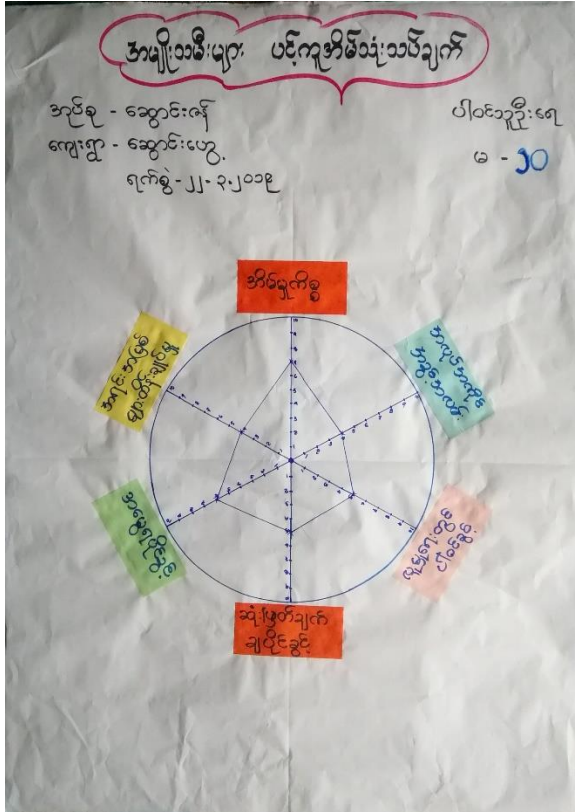 အမျိုးသမီးများ ပင့်ကူအိမ်သုံးသပ်ချက်
အုပ်စု - ဆောင်းဇန်
ကျေးရွာ - ဆောင်းဟွေ့
ရက်စွဲ - ၂၂-၃.၂၀၁၉
ပါဝင်သူဦးရေ
မ - ၁၀
အိမ်မှုကိစ္စ
အလုပ်အကိုင်
အခွင့်အလမ်း
လူမှုရေးတွင်
ပါဝင်ခွင့်
ဆုံးဖြတ်ချက်
ချပိုင်ခွင့်
အမွေရပိုင်ခွင့်
အရင်းအမြစ်
များထိန်းချုပ်မှု